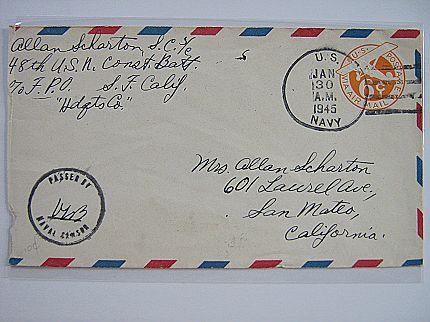 Allan Scharton, S.C. 1/c
48th U.S.N. Const. Batt.
℅ F.P.O. S.F. Calif.
"Hdqts Co."
U.S.
JAN
30
A.M.
1945
NAVY
U.S. POSTAGE
6¢
VIA AIR MAIL
Mrs. Allan Scharton
601 Laurel Ave,
San Mateo,
California.
PASSED BY
NAVAL CENSOR